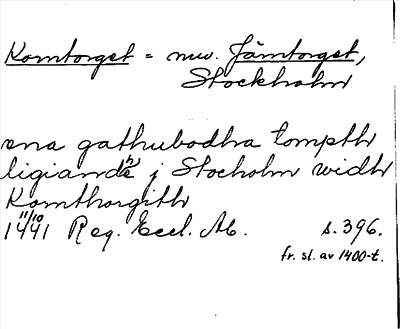 Korntorget = nuv. Järntorget,
Stockholm
ena gathubodha tompth
ligiandé j Stocholm widh
Kornthorgith
11/10
1441 Reg. Eccl. Ab. s. 396.
fr. sl. av 1400-t.